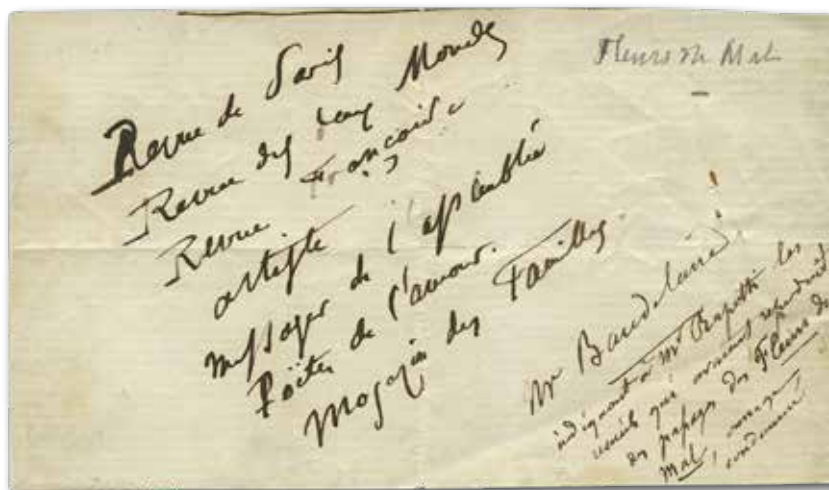 Fleurs du Mal
Revue de Paris
Revue des deux Mondes
Revue Française
artiste
Messager de l'assemblée
Poëtes de l'amour.
Magazin des Familles.
Mr Baudelaire,
indiquant à Mr Rapetti les
recueils qui avaient reproduit
des passages des Fleurs du
Mal, ouvrage
condamné